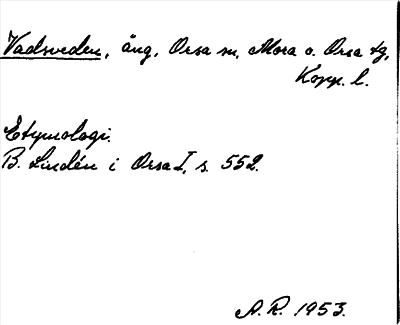 Vadsveden, äng, Orsa sn, Mora o. Orsa tg,
Kopp. l.
Etymologi.
B. Lindén i Orsa I, s. 552.
A. R. 1953.